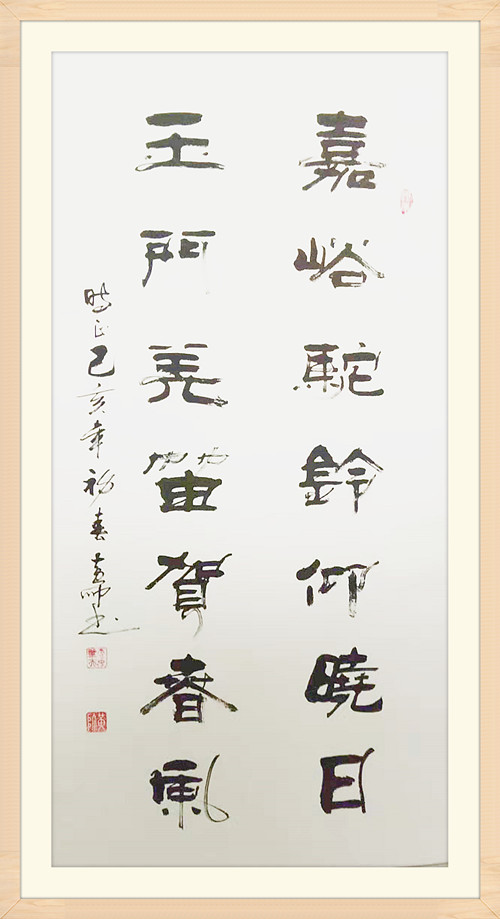 嘉峪駝鈴仰曉日
玉門羌笛賀春風
己亥年初春